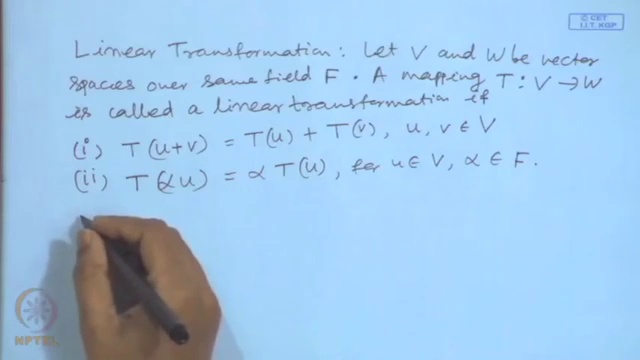 © CET
I.I.T. KGP
Linear Transformation: Let V and W be vector
spaces over same field F. A mapping T: V → W
is called a linear transformation if
(i) T(u+v) = T(u) + T(v), u, v ∈ V
(ii) T(αu) = α T(u), for u ∈ V, α ∈ F.
NPTEL